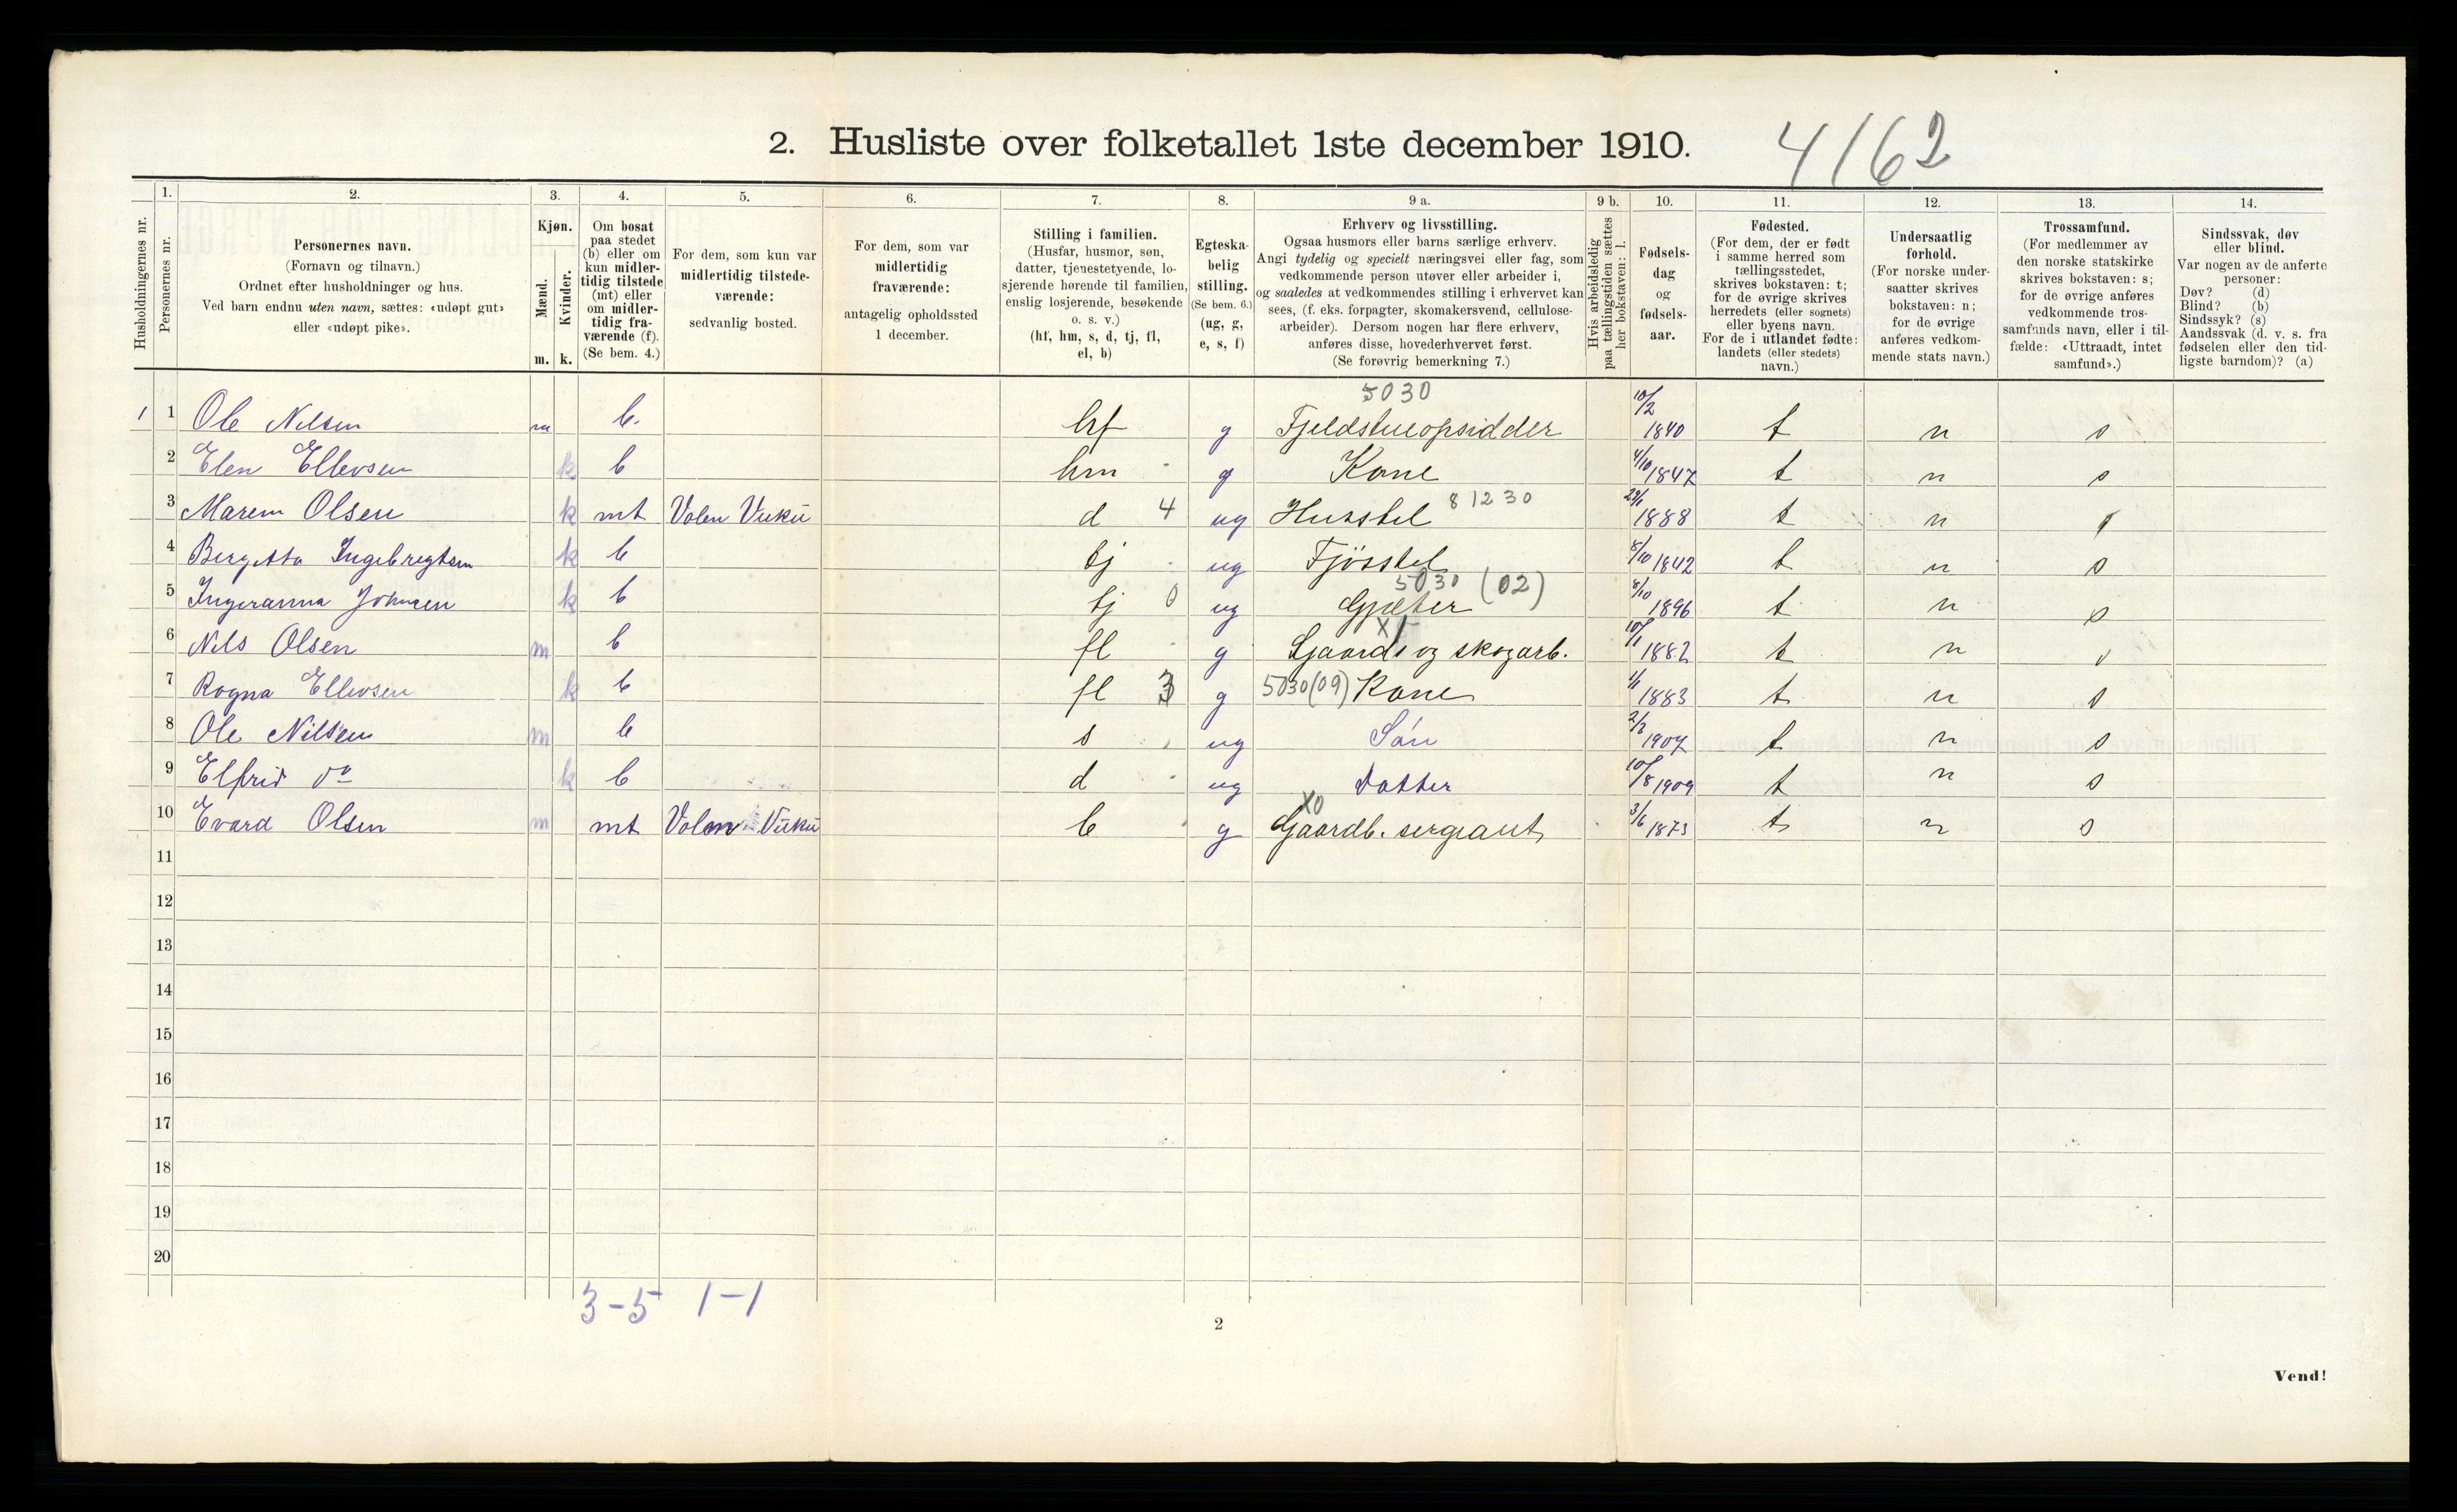 2. Husliste over folketallet 1ste december 1910. 4162
Husholdningernes nr.
1. Personernes nr.
2. Personernes navn. (Fornavn og tilnavn.) Ordnet efter husholdninger og hus. Ved barn endnu uten navn, sættes: «udøpt gut» eller «udøpt pike».
3. Kjøn. Mænd. m. Kvinder. k.
4. Om bosat paa stedet (b) eller om kun midler-tidig tilstede (mt) eller om midler-tidig fra-værende (f). (Se bem. 4.)
5. For dem, som kun var midlertidig tilstede-værende: sedvanlig bosted.
6. For dem, som var midlertidig fraværende: antagelig opholdssted 1 december.
7. Stilling i familien. (Husfar, husmor, søn, datter, tjenestetyende, lo-sjerende hørende til familien, enslig losjerende, besøkende o. s. v.) (hf, hm, s, d, tj, fl, el, b)
8. Egteska-belig stilling. (Se bem. 6.) (ug, g, e, s, f)
9 a. Erhverv og livsstilling. Ogsaa husmors eller barns særlige erhverv. Angi tydelig og specielt næringsvei eller fag, som vedkommende person utøver eller arbeider i, og saaledes at vedkommendes stilling i erhvervet kan sees, (f. eks. forpagter, skomakersvend, cellulose-arbeider). Dersom nogen har flere erhverv, anføres disse, hovederhvervet først. (Se forøvrig bemerkning 7.)
9 b. Hvis arbeidsledig paa tællingstiden sættes her bokstaven: l.
10. Fødsels-dag og fødsels-aar.
11. Fødested. (For dem, der er født i samme herred som tællingsstedet, skrives bokstaven: t; for de øvrige skrives herredets (eller sognets) eller byens navn. For de i utlandet fødte: landets (eller stedets) navn.)
12. Undersaatlig forhold. (For norske under-saatter skrives bokstaven: n; for de øvrige anføres vedkom-mende stats navn.)
13. Trossamfund. (For medlemmer av den norske statskirke skrives bokstaven: s; for de øvrige anføres vedkommende tros-samfunds navn, eller i til-fælde: «Uttraadt, intet samfund».)
14. Sindssvak, døv eller blind. Var nogen av de anførte personer: Døv? (d) Blind? (b) Sindssyk? (s) Aandssvak (d. v. s. fra fødselen eller den tid-ligste barndom)? (a)
5030
1 1 Ole Nilsen m b. hf g Fjeldstueopsidder 10/2 1840 t n s
2 Elen Ellevsen k b hm g Kone 4/10 1847 t n s
3 Maren Olsen k mt Volen Vuku d 4 ug Husstel 81230 1888 t n s
4 Bergitta Ingebregtsen k b tj ug Fjösstel 8/10 1842 t n s
5 Ingeranna Johnsen k b tj 0 ug Gjæter 5030 (02) 8/10 1896 t n s
6 Nils Olsen m b fl g Gaards og skogarb. 10/1 1882 t n s
7 Ragna Ellevsen k b fl 3 g 5030 (09) Kone 1/1 1883 t n s
8 Ole Nilsen m b s ug Sön 1907 t n s
9 Elfrid do k b d ug Datter 10/8 1909 t n s
10 Evard Olsen m mt Volen Vuku b g X0 Gaardb. sergeant 3/6 1873 t n s
11
12
13
14
15
16
17
18
19
20
3-5 1-1
2
Vend!